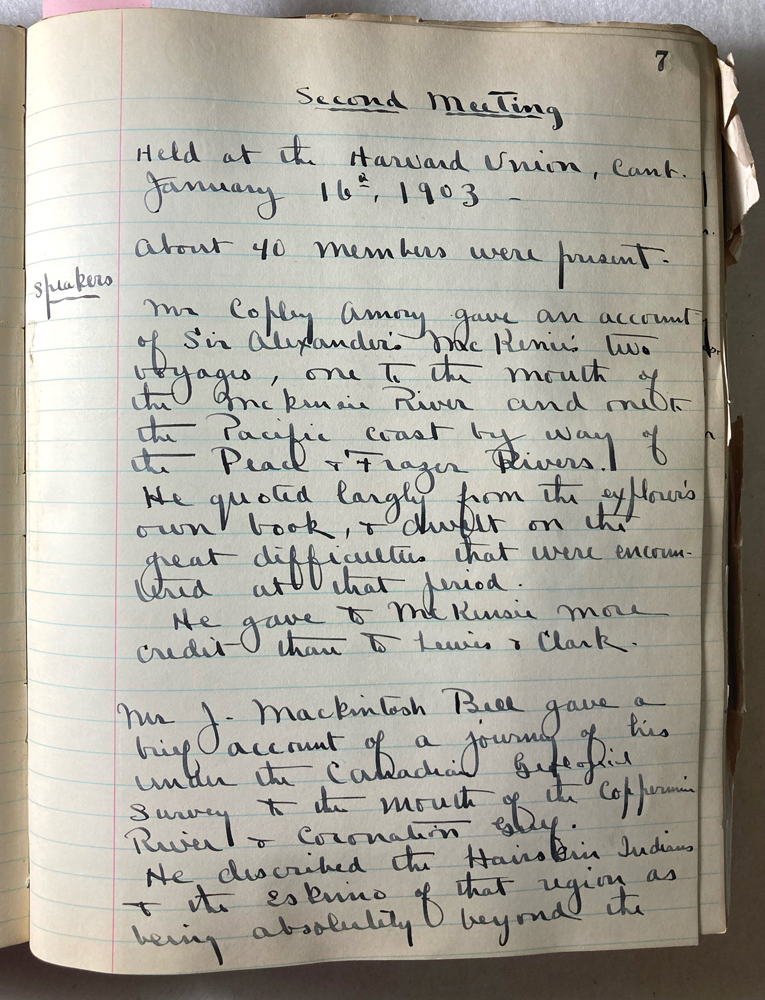 7
Second Meeting
Held at the Harvard Union, Camb.
January 16th, 1903 -
About 40 members were present.
Speakers
Mr Copley Amory gave an account
of Sir Alexander's MacKenie's two
voyages, one to the mouth of
the McKensie River and one to
the Pacific coast by way of
the Peace & Frazer Rivers.
He quoted largely from the explorer's
own book, & dwelt on the
great difficulties that were encoun-
tered at that period.
He gave to McKensie more
credit than to Lewis & Clark.
Mr J. Mackintosh Bell gave a
brief account of a journey of his
under the Canadian Geologic
Survey to the mouth of the Coppermin
River & Coronation Gulf.
He described the Hairskin Indians
& the Eskimo of that region as
being absolutely beyond the